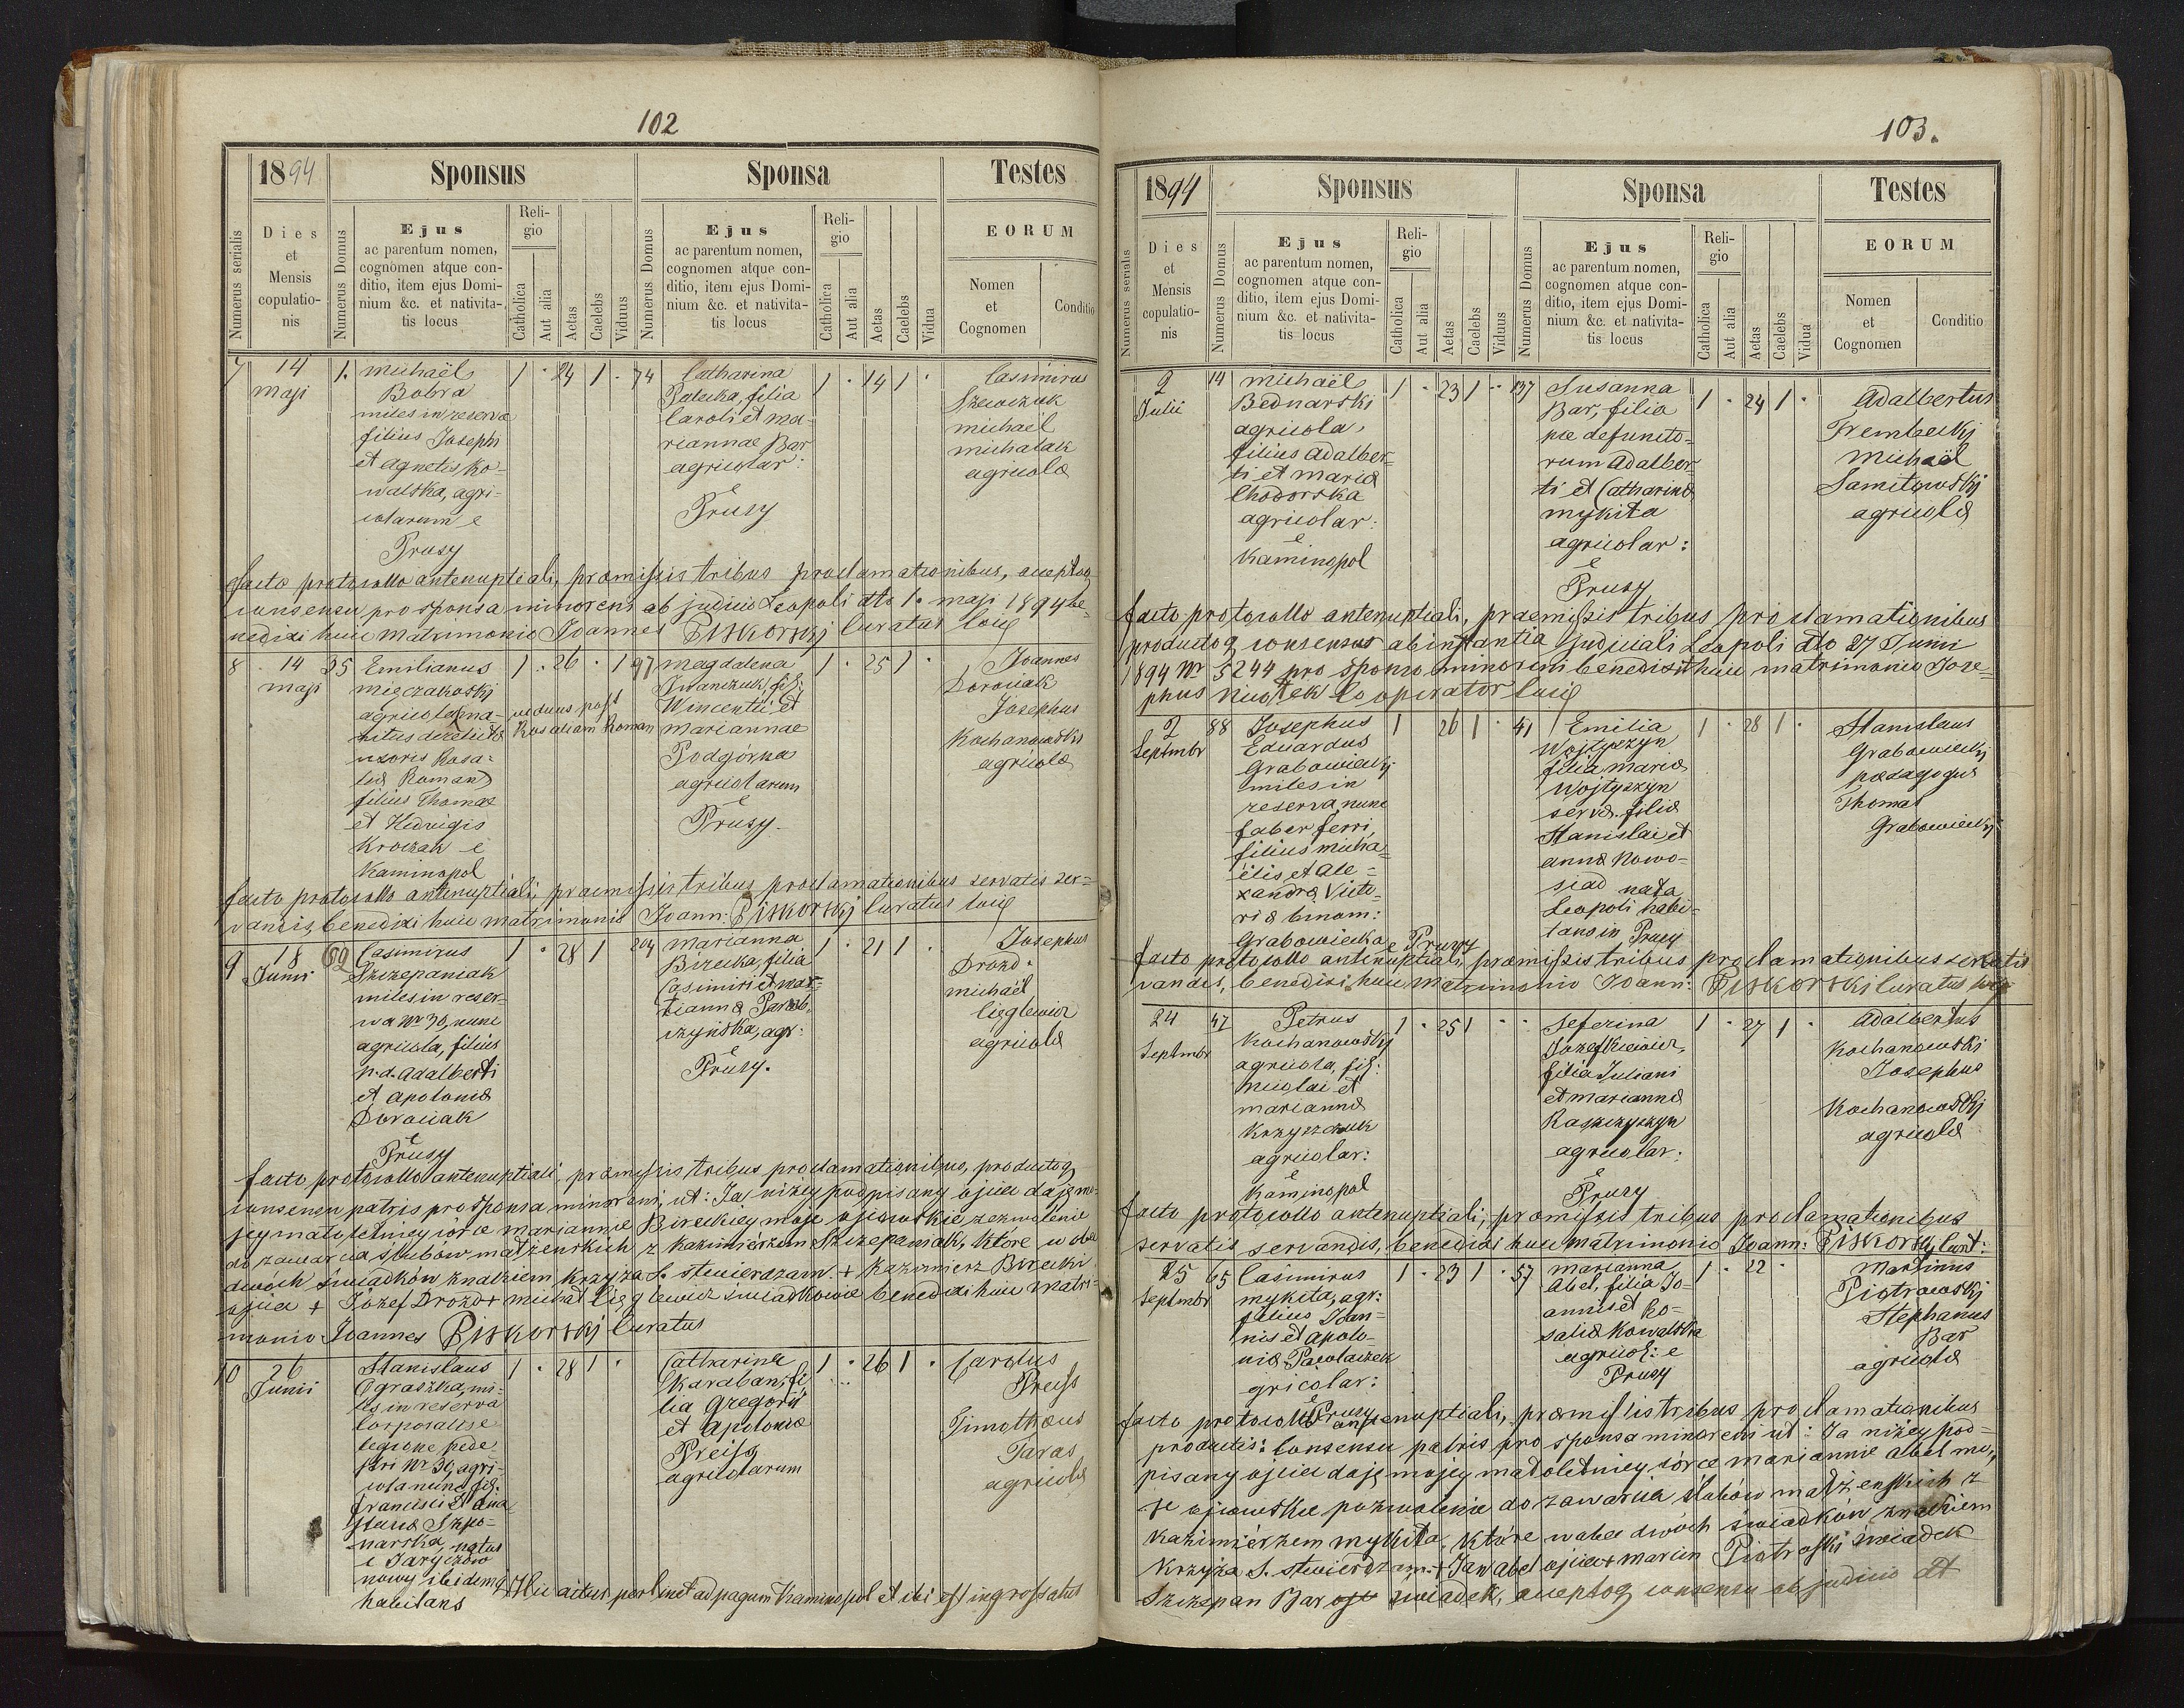 102
1894
Sponsus
Sponsa
Testes
Numerus serialis
Dies
et
Mensis
copulatio-
nis
Numerus Domus
Ejus
ac parentum nomen,
cognomen atque con-
ditio, item ejus Domi-
nium &c. et nativita-
tis locus
Reli-
gio
Catholica
Aut alia
Aetas
Caelebs
Viduus
Numerus Domus
Ejus
ac parentum nomen,
cognomen atque con-
ditio, item ejus Domi-
nium &c. et nativita-
tis locus
Reli-
gio
Catholica
Aut alia
Aetas
Caelebs
Vidua
EORUM
Nomen
et
Cognomen
Conditio
7
14
maji
1.
michaël
Bobra
miles in reserva
filius Josephi
et agnetis Ko-
walska, agri-
colarum e
Prusy
1 · 24 1 ·
74
Catharina
filia
Caroli et Ma-
riannae Bar
agricolar:
e
Prusy
1 · 14 1 ·
Casimirus
Szewczuk
michaël
michalak
agricolæ
facto protocollo antenuptiali, præmissis tribus proclamationibus, acceptoq
consensu pro sponsa minorenni ab judicio Leopoli dto 1. maji 1894 be-
nedixi huic matrimonio Joannes Piskorskj Curatus loci
8
14
maji
35
Emilianus
mięczakoskj
agricola ma-
ritus derelictæ
uxoris Rosa-
liæ Roman
filius Thomae
et Hedvigis
Kroczak e
Kaminopol
1 · 26 · 1
viduus post
Rosaliam Roman
97
magdalena
Iwanczuk, fil:
Wincentii et
mariannae
Podgórna
agricolarum
e
Prusy
1 · 25 1 ·
Joannes
Dorociak
Josephus
Kochanowskj
agricolæ
facto protocollo antenuptiali, praemissis tribus proclamationibus servatis ser-
vandis, benedixi huic matrimonio Joann: Piskorskj Curatus loci
9
18
Junii
69
Casimirus
Szczepaniak
miles in reser-
va Nr 30, nunc
agricola, filius
p. d. adalberti
et apoloniæ
Dorociak
e
Prusy
1 · 28 1
204
marianna
Birecka, filia
Casimiri et mar-
iannæ Parab-
czyńska, agr:
e
Prusy.
1 · 21 1 ·
Josephus
Drozd
michaël
Cięglewicz
agricolæ
facto protocollo antenuptiali, præmissis tribus proclamationibus, productoq
consensu patris pro sponsa minorenni, ut: Ja niżej podpisany ojciec daję mo-
jej małoletniej córce mariannie Bireckiej moje ojcowskie zezwolenie
do zawarcia ślubów małżeńskich z Kazimiérzem Szczepaniak, które w obec
dwóch świadków znakiem krzyża S. stwierdzam. + Kazimierz Birecki
ojciec + Józef Drozd + michał Cięglewicz świadkowie benedixi huic matri-
monio Joannes Piskorskj Curatus
10
26
Junii
Stanislaus
Ograszka, mi-
les in reserva
Corporalis e
legione pede-
stri Nr 30, agri-
cola nunc fil.
Francisci et ana
stasiæ Szpo-
narska, natus
e Jaryczow
nowy ibidem
habitans
1 · 28 1 ·
Catharina
Karaban, fi
lia Gregorii
et apoloniæ
Preiss
agricolarum
1 · 26 1 ·
Carolus
Preiss
Timothæus
Taras
agricolæ
Hic actus pertinet ad pagum Kaminopol et ibi est ingrossatus
103.
1894
Sponsus
Sponsa
Testes
Numerus serialis
Dies
et
Mensis
copulatio-
nis
Numerus Domus
Ejus
ac parentum nomen,
cognomen atque con-
ditio, item ejus Domi-
nium &c. et nativita-
tis locus
Reli-
gio
Catholica
Aut alia
Aetas
Caelebs
Viduus
Numerus Domus
Ejus
ac parentum nomen,
cognomen atque con-
ditio, item ejus Domi-
nium &c. et nativita-
tis locus
Reli-
gio
Catholica
Aut alia
Aetas
Caelebs
Vidua
EORUM
Nomen
et
Cognomen
Conditio
2
Julii
14
michaël
Bednarski
agricola,
filius adalber-
ti et mariæ
Chodorska
agricolar:
e
Kaminopol
1 · 23 1 ·
137
Susanna
Bar, filia
pie defuncto-
rum adalber-
ti et Catharinæ
mykita
agricolar:
e
Prusy
1 · 24 1 ·
Adalbertus
Trembeckj
michaël
agricolæ
facto protocollo antenuptiali, praemissis tribus proclamationibus
productoq consensus ab instantia judiciali Leopoli dto 27 Junii
1894 Nr 5244 pro sponso minorenni benedixit huic matrimonio Jose-
phus Cooperator loci
2
Septmbr
88
Josephus
Eduardus
Grabowieckj
miles in
reserva nunc
faber ferri,
filius micha-
ëlis et ale-
xandræ Victo-
riæ binom:
Grabowiecka e Prusy
1 26 1 ·
41
Emilia
Wojtyszyn
filia mariæ
Wojtyszyn
serva filiæ
Stanislai et
annæ Nowo-
siad nata
Leopoli habi-
tans in Prusy
1 · 28 1 ·
Stanislaus
Grabowieckj
pædagogus
Thomas
Grabowieckj
facto protocollo antenuptiali, præmissis tribus proclamationibus servatis
vandis, benedixi huic matrimonio Joann: Piskorskj Curatus loci
24
Septmbr
47
Petrus
Kochanowskj
agricola, fil:
Nicolai et
mariannæ
Krzyszczuk
agricolar:
e
Kaminopol
1 · 25 1 · ·
Seferina
Jozefkiewicz,
filia Juliani
et mariannæ
Raszczyszyn
agricolar:
e
Prusy
1 · 27 1 ·
adalbertus
Kochanowskj
Josephus
Kochanowskj
agricolæ
facto protocollo antenuptiali, præmissis tribus proclamationibus
servatis servandis, benedixi huic matrimonio Joann: Piskorskj Curt:
25
Septmbr
65
Casimirus
mykita, agr:
filius Joan-
nis et apolo-
niæ
gricolar:
e Prusy
1 · 23 1 ·
57
marianna
Abel, filia Jo-
annis et Ro-
saliæ Kowalska
agricol: e
Prusy
1 · 22 ·
Martinus
Piotrowskj
Stephanus
Bar
agricolæ
facto protocollo antenuptiali, præmissis tribus proclamationibus
productis: Consensu patris pro sponsa minorenni ut: Ja niżej pod-
pisany ojciec daję mojej małoletniej córce mariannie abel mo-
je ojcowskie pozwolenie do zawarcia ślubów małżeńskich z
Kazimiérzem mykita, które w obec dwóch świadków znakiem
Krzyża S. stwierdzam. + Jan abel ojciec + marcin Piotroski świadek
Szczepan Bar świadek, acceptoq consensu ab judicio dt